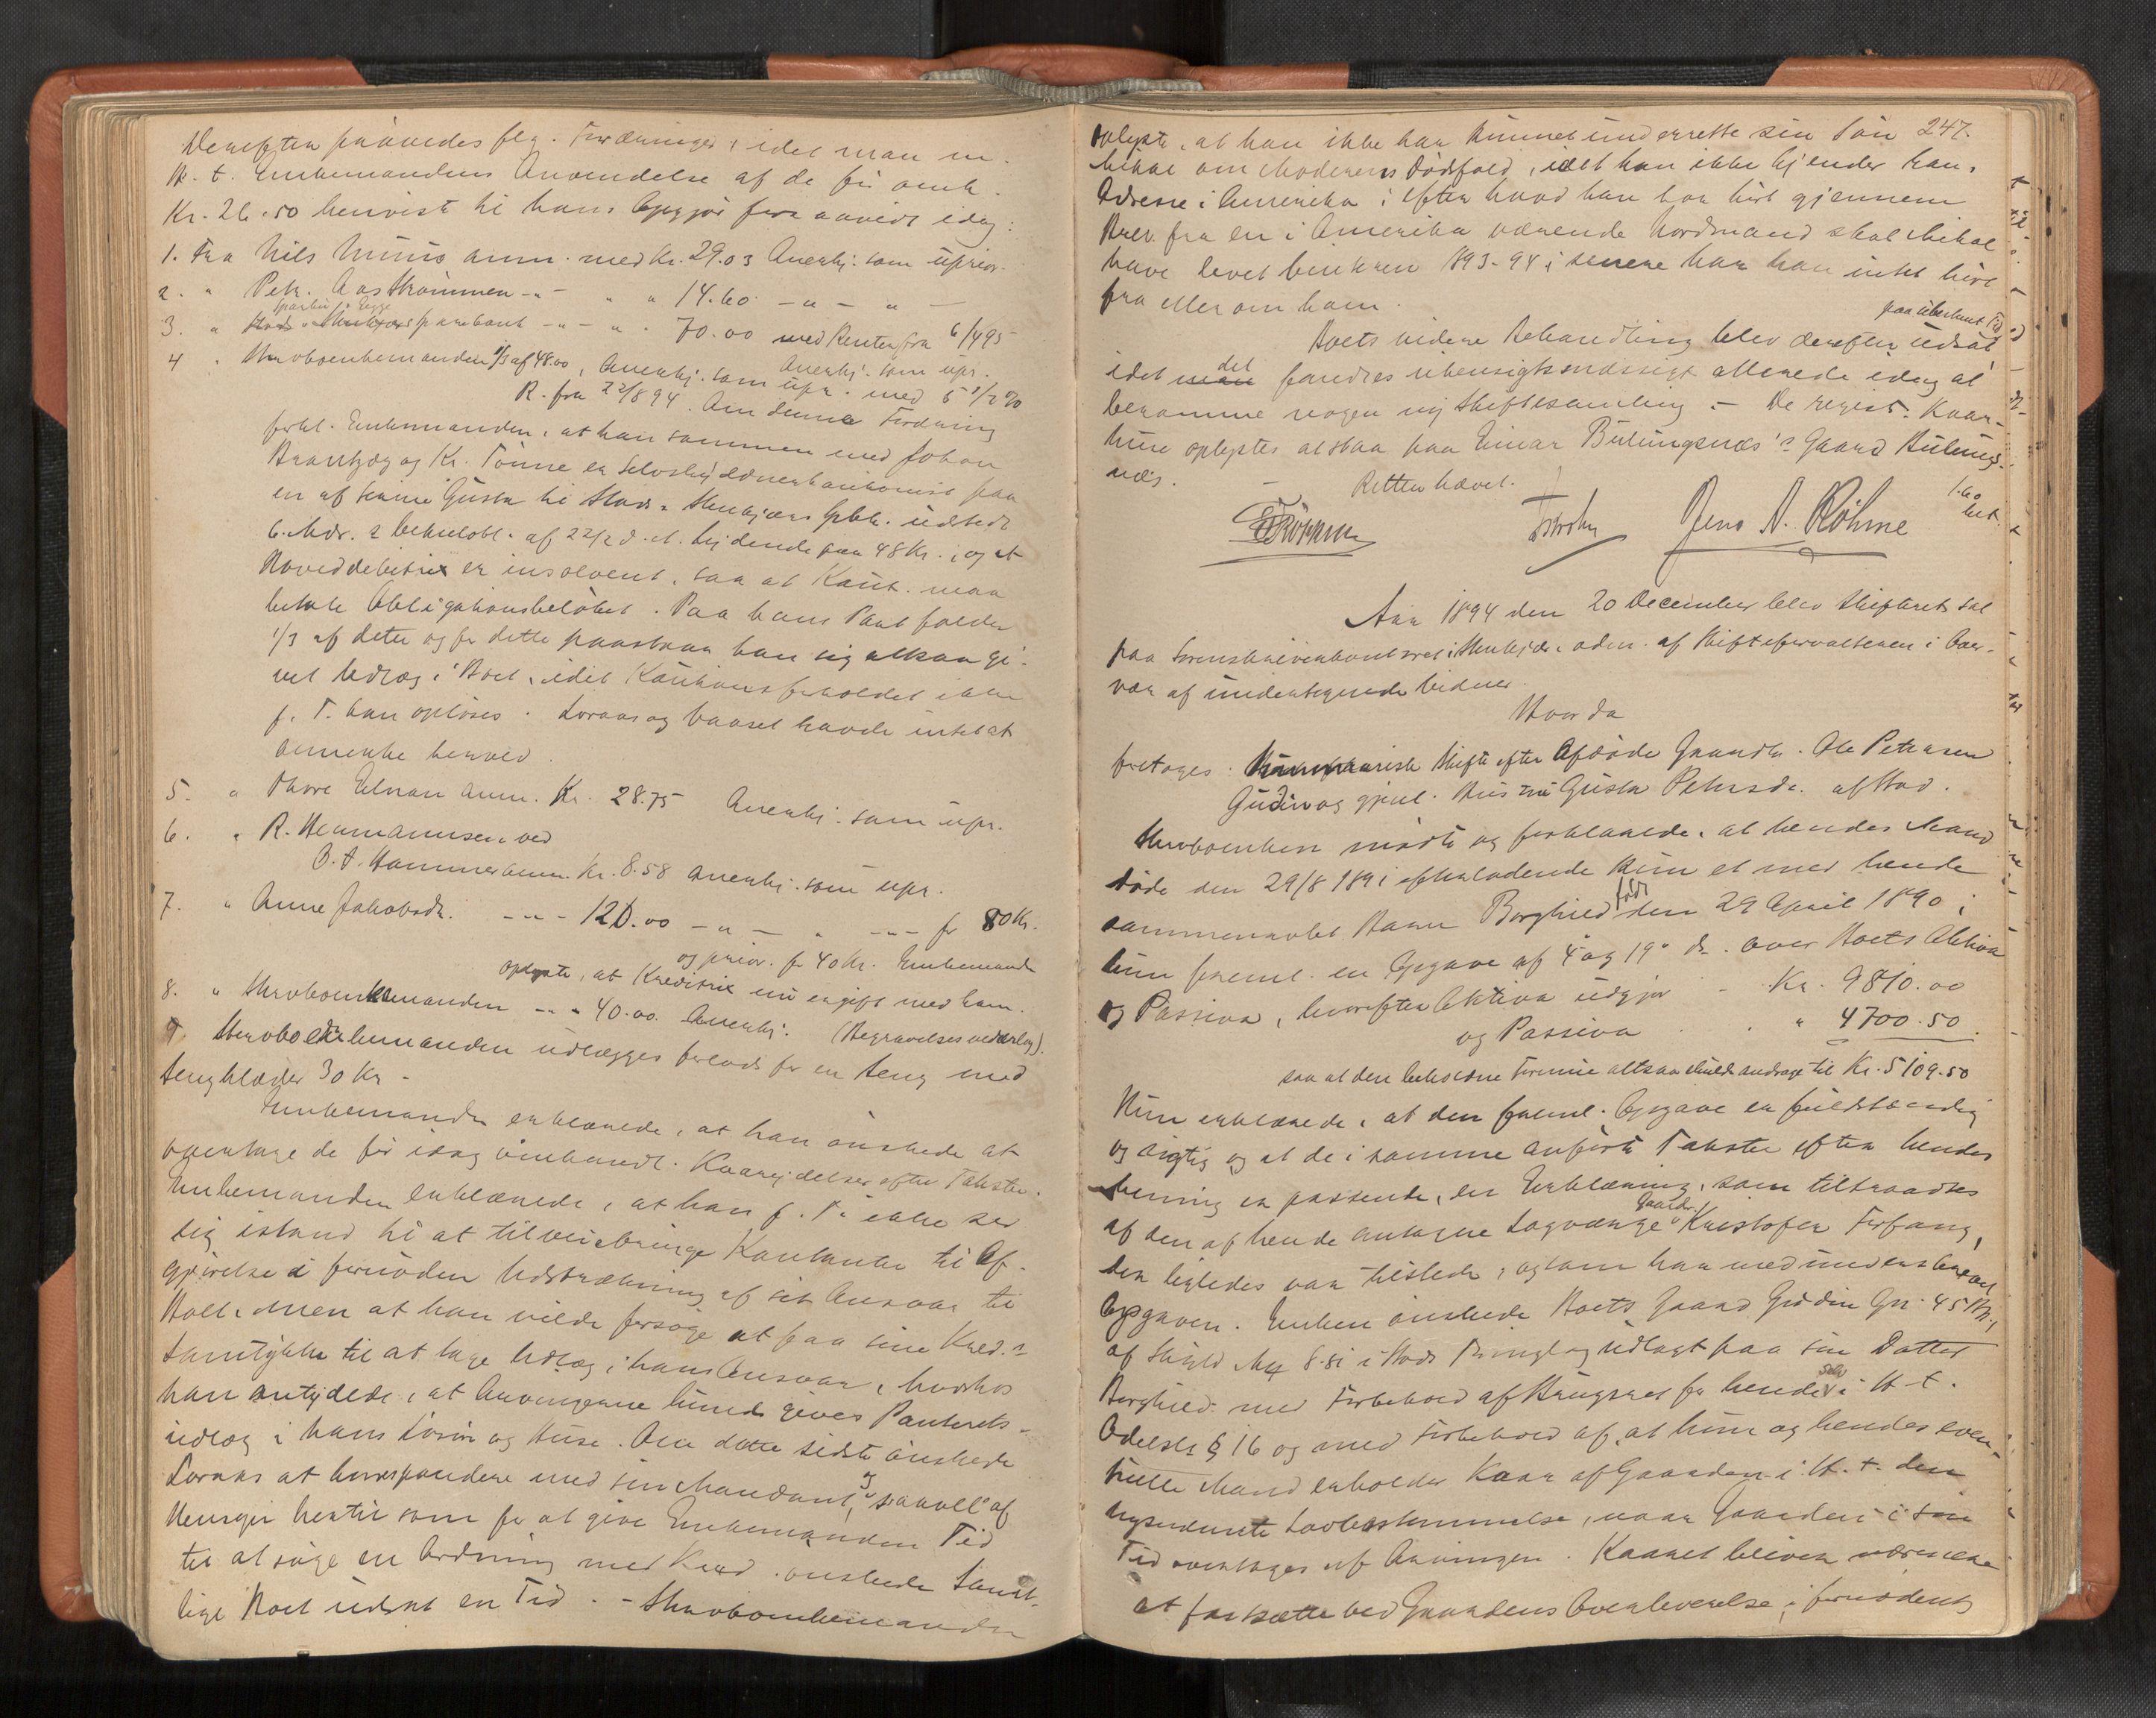 Derefter prøvedes flg. Fordringer, idet man m.
H. t. Enkemandens Anvendelse af de før omh.
Kr. 26.50 henviste til hans Opgjør foran anført idag:
1. Fra Nils Muus anm. med Kr. 29.03 Anerkj. som uprior.
2. " Petr. Aas Strømmen -"- " " 14.60 -"- " -
3. " Sparbu & Egge Sparebank -"- " " 70.00 med Renter fra 6/4 95
Anerkj. som upr.
4 " Stervboenkemanden 1/3 af 48.00, Anerkj. som upr. med 5 1/2 %
R. fra 22/8 94. Om denne Fordring
forkl. Enkemanden, at han sammen med Johan
og Kr. Tønne er Selvskyldnerkautionist paa
en af Gusta til Stods & Stenkjærs Spbk. udstedt
6. Mdr. s Vexelobl. af 22/2 d. A. lydende paa 48 Kr., og at
Hoveddebitrix er insolvent, saa at Kaut. maa
betale Obligationsbeløbet. Paa hans Part falder
1/3 af dette og for dette paastaar han sig altsaa gi-
vet Udlæg i Boet, idet Kautionsforholdet ikke
f. T. kan opløses. Loraas og havde intet at
bemerke herved.
5. " Thore Elnan anm. Kr. 28.75 Anerkj. som upr.
6. " R. Hermannsen ved
O. A. Hammer anm. Kr. 8.58 anerkj. som upr.
7. " Anne Jakobsdr. -"- 120.00 -"- " -"- for 80 Kr.
og prior. for 40 Kr. Enkemanden
oplyste, at Kreditrix nu er gift med ham.
8. " Stervboenkemanden -"- 40.00 Anerkj. (Begravelsesvederlag).
9 Stervboenkemanden udlægges forlods for en Seng med
Sengklæder 30 Kr -
Enkemanden erklærede, at han ønskede at
overtage de før idag omhandl. Kaarydelser efter Takster.
Enkemanden erklærede, at han f. T. ikke ser
sig istand til at tilveiebringe Kontanter til Af-
gjørelse i fornøden Udstrækning af sit Ansvar til
Boet, men at han vilde forsøge at faa sine Kred.s
Samtykke til at tage Udlæg i hans Ansvar, hvorhos
han antydede, at Arvingerne kunde gives Panterets-
udlæg i hans Løsøre og Huse. Om dette sidste ønskede
Loraas at korrespondere med sin Mandant, og saavel af
Hensyn hertil som for at give Enkemanden Tid
til at søge en Ordning med Kred. ønskede Samt-
lige Boet udsat en Tid. - Stervboenkemanden
247.
oplyste, at han ikke har kunnet underrette sin Søn
Mikal om Moderens Dødsfald, idet han ikke kjender hans
Adresse i Amerika; efter hvad han har hørt gjennem
Brev fra en i Amerika værende Nordmand skal Mikal
have levet Vinteren 1893-94; senere har han intet hørt
fra eller om ham.
paa ubestemt Tid
Boets videre Behandling blev derefter udsat
idet man det fandtes uhensigtsmæssigt allerede idag at
beramme nogen ny Skiftesamling. - De regist. Kaar-
huse oplystes at staa paa Einar Bulungsnæs's Gaard Bulungs-
næs. - Retten hævet.
Jens N. Røhme
Aar 1894 den 20 December blev Skifteret sat
paa Sorenskriverkontoret i Stenkjær, adm. af Skifteforvalteren i Over-
vær af undertegnede Vidner.
Hvor da
foretoges: Skifte efter Afdøde Gaardbr. Ole Petersen
Gudin og gjenl. Hustru Gusta Petersdr. af Stod.
Stervboenken mødte og forklarede, at hendes Mand
døde den 29/8 1891 efterladende kun et med hende
sammenavlet Barn Borghild født den 29 April 1890;
hun freml. en Opgave af 4" og 19" ds. over Boets Aktiva
og Passiva, hvorefter Aktiva udgjør - Kr. 9810.00
og Passiva . . " 4700.50
saa at den beholdne Formue altsaa skulde andrage til Kr. 5109.50
Hun erklærede, at den freml. Opgave er fuldstændig
og rigtig og at de i samme anførte Takster efter hendes
Mening er passende, en Erklæring, som tiltraadtes
af den af hende antagne Lagværge Gaardbr. Kristofer Forfang,
der ligeledes var tilstede, og som har medunderskrevet
Opgaven. Enken ønskede Boets Gaard Gudin Gn. 45 Bn. 1
af Skyld Mk 8.81 i Stods Thinglag udlagt paa sin Datter
Borghild med Forbehold af Brugsret for hende selv i H. t.
Odelsl. § 16 og med Forbehold af, at hun og hendes even-
tuelle Mand erholder Kaar af Gaarden i H. t. den
nysnævnte Lovbestemmelse, naar Gaarden i sin
Tid overtages af Arvingen. Kaaret bliver nærmere
at fastsætte ved Gaardens Overleverelse, i fornødent